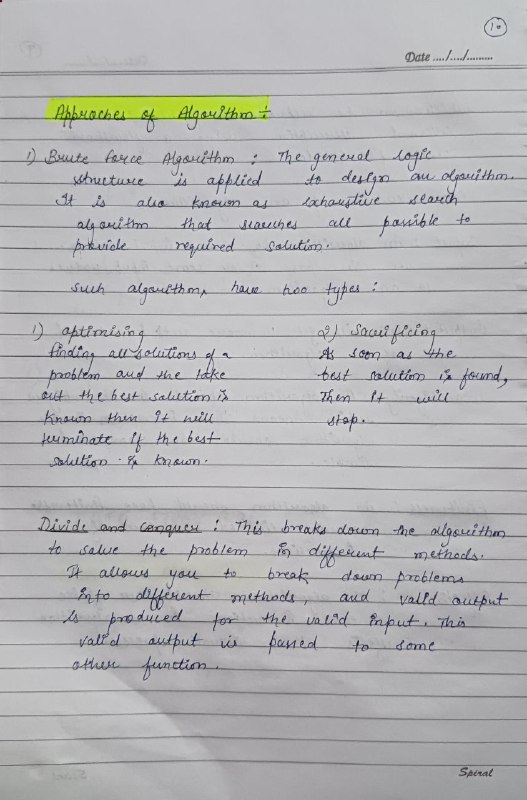 10
Date ..../..../.........
Approches of Algorithm :-
1) Brute force Algorithm : The general logic
structure is applied to design an algorithm.
It is also known as exhaustive search
algorithm that searches all possible to
provide required solution.
such algorithm, have two types :
1) optimising
finding all solutions of a
problem and the take
out the best solution is
known then it will
terminate if the best
solution is known.
2) Sacrificing
As soon as the
best solution is found,
Then it will
stop.
Divide and conquer : This breaks down the algorithm
to solve the problem in different methods.
It allows you to break down problems
into different methods, and valid output
is produced for the valid input. This
valid output is passed to some
other function.
Spiral